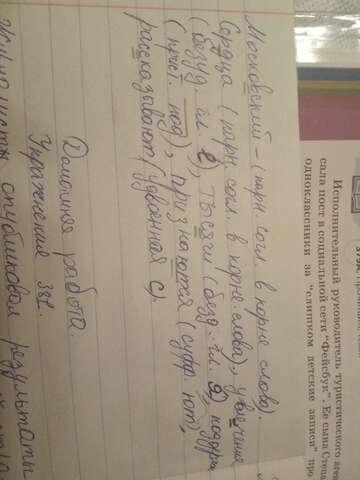 Московский – (парн. согл. в корне слова).
Сердца (парн. согл. в корне слова), увлечение
(безуд. гл. е), тысячи (безуд. гл. я), подура
(прист. под), признаются (суфф. ют),
рассказывают (удвоенная с)
Домашняя работа.
Упражнение 381.
опубликовал результаты
Исполнительный руководитель туристического аген
сала пост в социальной сети "Фейсбук". Её сына Степа
одноклассники за "слишком детские записи" про